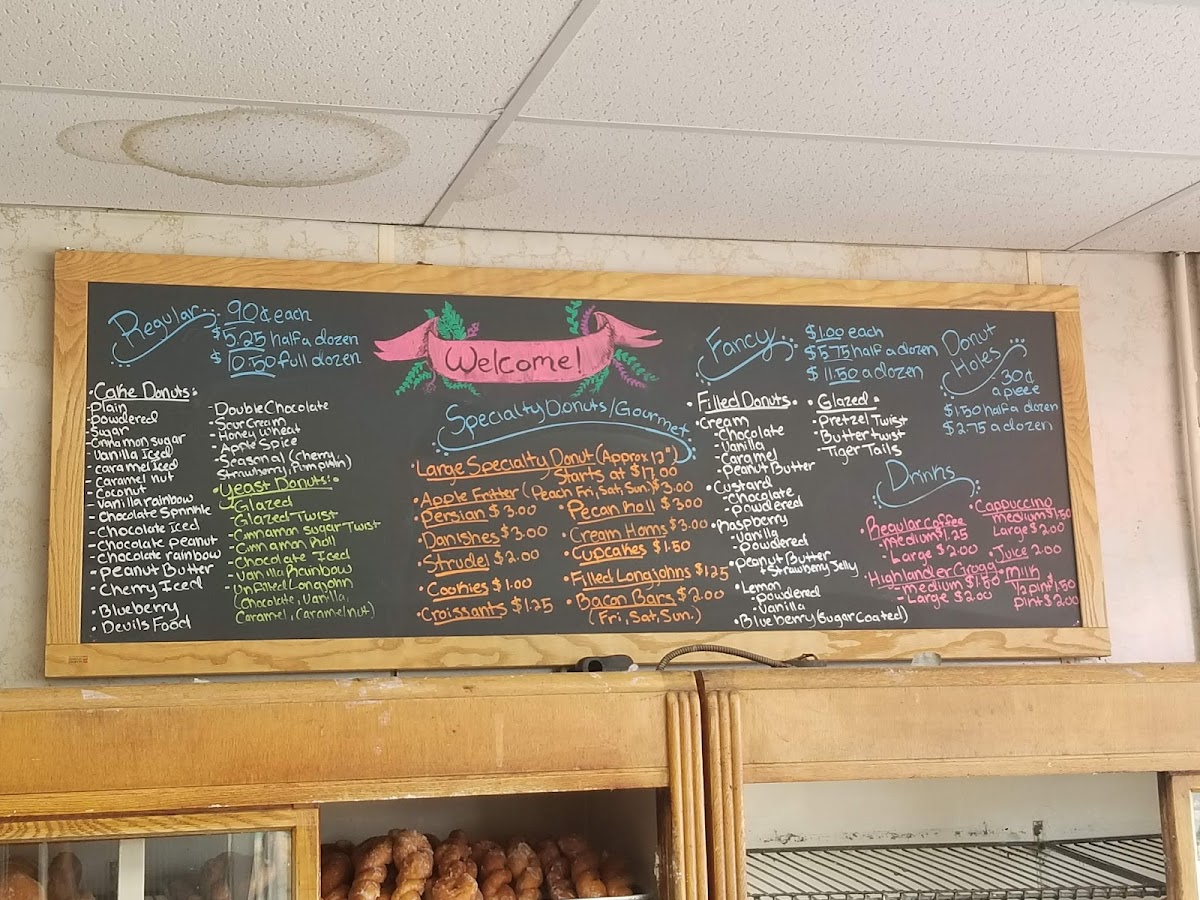 Regular
90¢ each
$5.25 half a dozen
$10.50 full dozen
• Cake Donuts:
- Plain
- Powdered
- Sugar
- Cinnamon sugar
- Vanilla Iced
- caramel iced
- caramel nut
- Coconut
- Vanilla rainbow
- Chocolate Sprinkle
- Chocolate iced
- Chocolate peanut
- Chocolate rainbow
- Peanut Butter
- Cherry Iced
- Blueberry
- Devils Food
- Double Chocolate
- Sour Cream
- Honey Wheat
- Apple Spice
- Seasonal (Cherry,
Strawberry, Pumpkin)
• Yeast Donuts:
- Glazed
- Glazed Twist
- Cinnamon Sugar Twist
- Cinnamon Roll
- Chocolate Iced
- Vanilla Rainbow
- Unfilled Longjohn
(Chocolate, Vanilla,
Caramel, Caramel nut)
Welcome!
Specialty Donuts/Gourmet
• Large Specialty Donut (Approx 12")
Starts at $17.00
• Apple Fritter (Peach Fri, Sat, Sun.) $3.00
• Persian $3.00
• Danishes $3.00
• Strudel $2.00
• Cookies $1.00
• Croissants $1.25
• Pecan Roll $3.00
• Cream Horns $3.00
• Cupcakes $1.50
• Filled Longjohns $1.25
• Bacon Bars $2.00
(Fri, Sat, Sun.)
Fancy
$1.00 each
$5.75 half a dozen
$11.50 a dozen
• Filled Donuts •
• Cream
- Chocolate
- Vanilla
- Caramel
- Peanut Butter
• Custard
- Chocolate
- Powdered
• Raspberry
- Vanilla
- Powdered
• Peanut Butter
+ Strawberry Jelly
• Lemon
- Powdered
- Vanilla
• Blueberry (Sugar Coated)
• Glazed •
- Pretzel Twist
- Butter twist
- Tiger Tails
Donut
Holes
30¢
a piece
$1.50 half a dozen
$2.75 a dozen
Drinks
• Regular Coffee
- medium $1.25
- Large $2.00
• Highlander Grogg
- medium $1.50
- Large $2.00
• Cappuccino
medium $1.50
Large $2.00
• Juice 2.00
• Milk
1/2 pint $1.50
pint $2.00